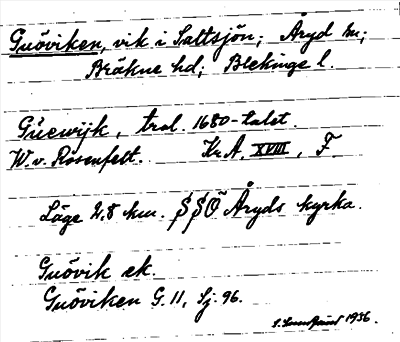 Guöviken, vik i Saltsjön; Åryd sn;
Bräkne hd; Blekinge l.
Güewijk, trol. 1680-talet.
W. v. Rosenfelt. Kr. A. XVIII, F.
Läge 2,8 km. SSO Åryds kyrka.
Guövik ek.
Guöviken G. 11, Sj. 96.
1936.